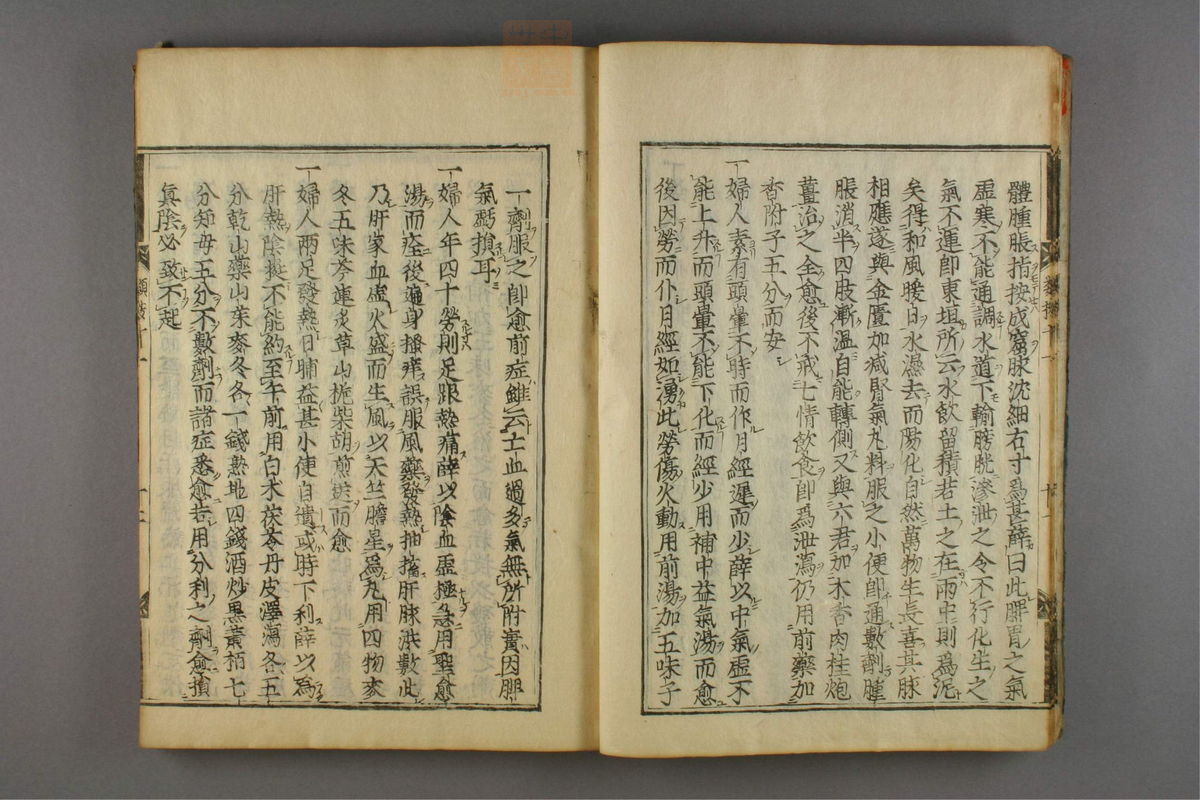 體腫脹指按成窟脉沈細右寸爲甚薛曰此脾胃之氣
虛寒不能通調水道下輸膀胱滲泄之令不行化生之
氣不運卽東垣所云水飲留積若土之在雨中則爲泥
矣得和風暖日水濕去而陽化自然萬物生長喜其脉
相應遂與金匱加减腎氣丸料服之小便卽通數劑腫
脹消半四肢漸溫自能轉側又與六君加木香肉桂炮
薑治之全愈後不戒七情飲食卽爲泄瀉仍用前藥加
香附子五分而安
一婦人素有頭暈不時而作月經遲而少薛以中氣虛不
能上升而頭暈不能下化而經少用補中益氣湯而愈
後因勞而仆月經如湧此勞傷火動用前湯加五味子
一齊服之卽愈前症雖云亡血過多氣無所附實因脾
氣虧損耳
一婦人年四十勞則足跟熱痛薛以陰血虛極急用聖愈
湯而痊後遍身搔痒誤服風藥發熱抽搐肝脉洪數此
乃肝家血虛火盛而生風以天竺膽星爲丸用四物麥
冬五味芩連炙草山梔柴胡煎送而愈
一婦人兩足發熱日晡益甚小便自遺或時下利薛以爲
肝熱陰挺不能約至午前用白术茯苓丹皮澤瀉各五
分乾山藥山茱麥冬各一錢熟地四錢酒炒黑黃栢七
分知母五分不數劑而諸症悉愈若用分利之劑愈損
眞陰必致不起